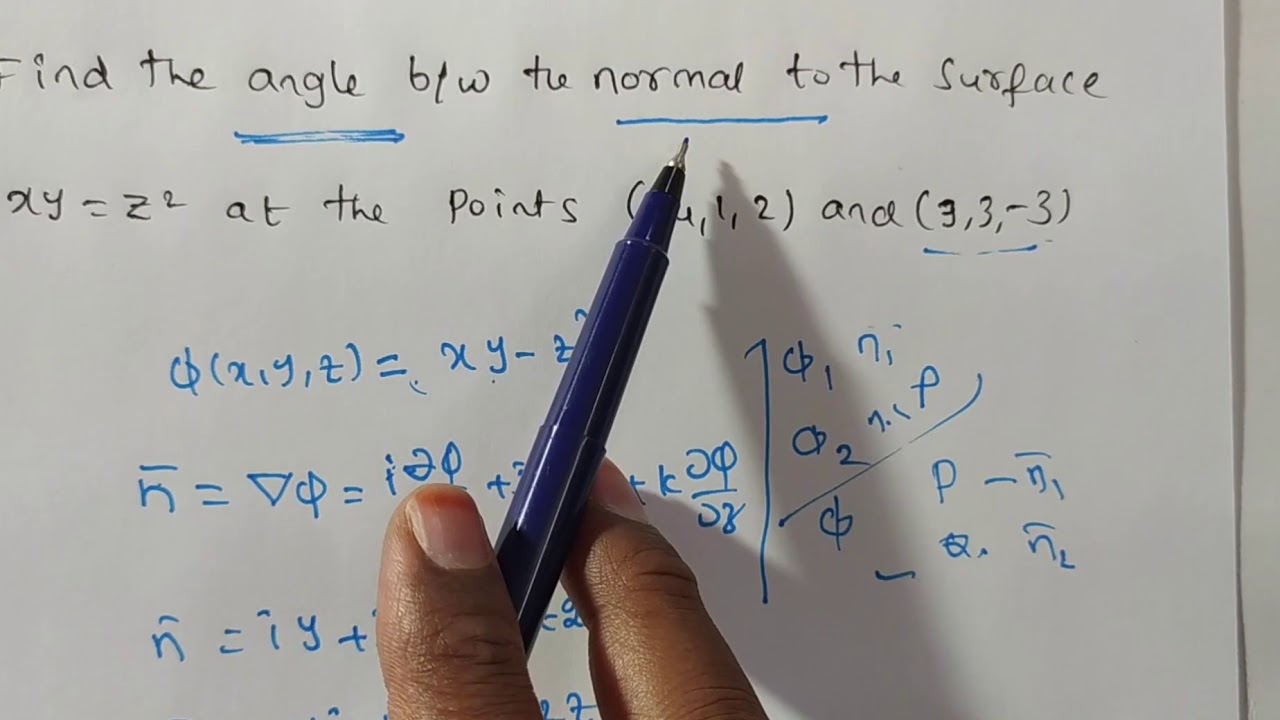 Find the angle b/w the normal to the surface
xy = z² at the points (4, 1, 2) and (3, 3, -3)
ϕ(x, y, z) = xy - z²
n̄ = ∇ϕ = i ∂ϕ + k ∂ϕ/∂z
n̄ = î y +
ϕ₁ n̄₁
ϕ₂ P
ϕ
P - n̄₁
Q. n̄₂